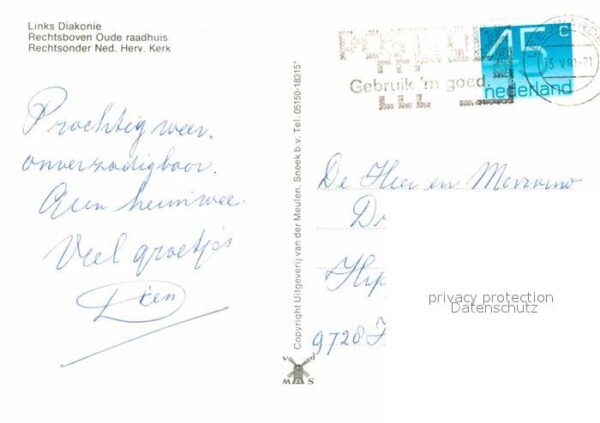 Links Diakonie
Rechtsboven Oude raadhuis
Rechtsonder Ned. Herv. Kerk
Prachtig weer,
onverzadigbaar.
Geen heimwee.
Veel groetjes
Dien
Copyright Uitgeverij van der Meulen, Sneek b.v. Tel. 05150-18315*
v d
M A S
POSTCODE
Gebruik 'm goed.
45 c
nederland
13.V.81-21
De Heer en Mevrouw
D
Hip
9728
privacy protection
Datenschutz